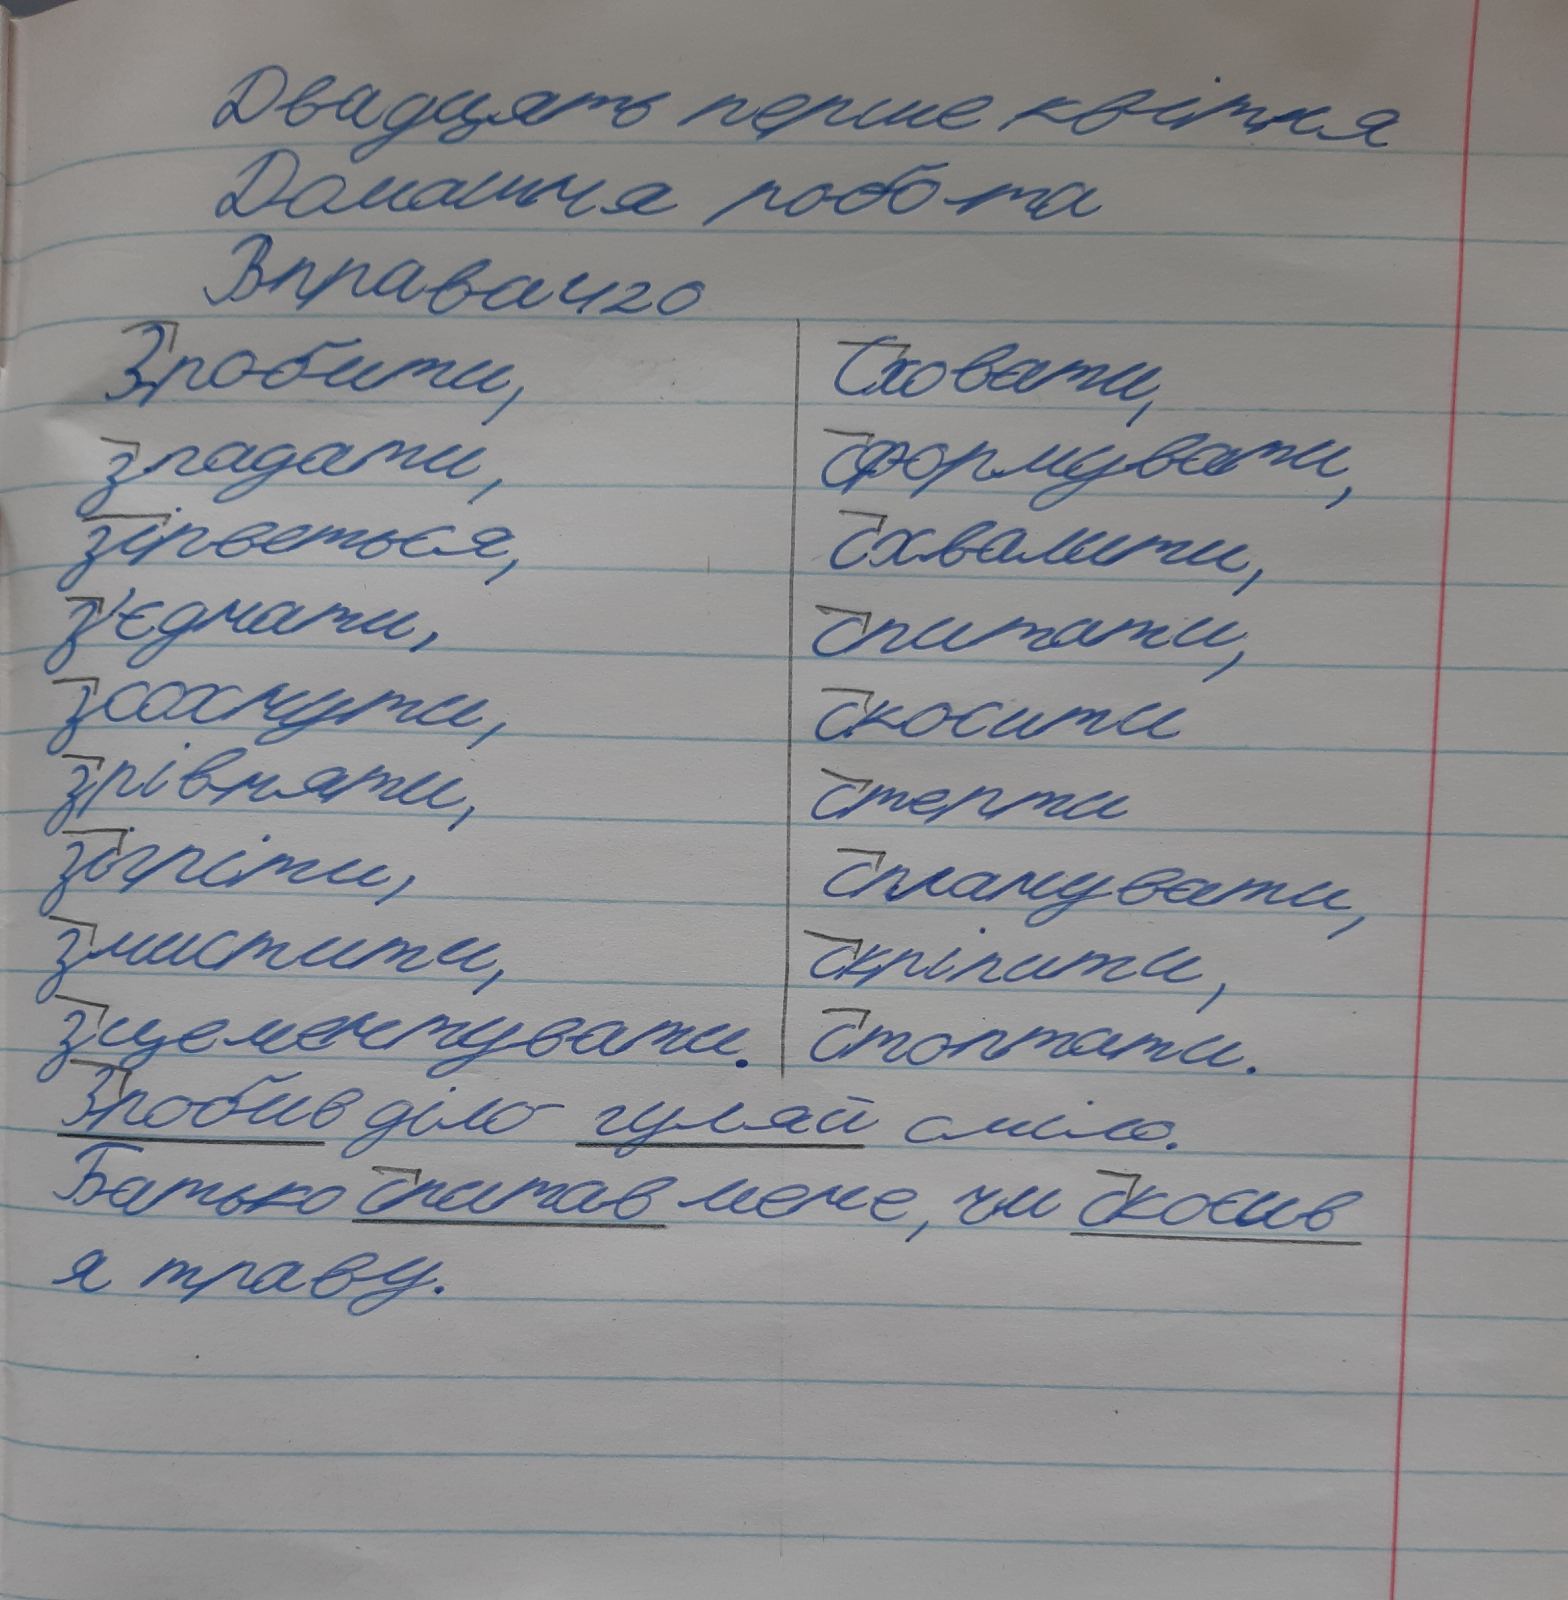 Двадцять перше квітня
Домашня робота
Вправа 420
Зробити,
згадати,
зірветься,
з'єднати,
зсохнути,
зрівняти,
зігріти,
змистити,
зцементувати.
Сховати,
сформувати,
схвалити,
спитати,
скосити
стерти
спланувати,
скріпити,
стоптати.
Зробив діло - гуляй сміло.
Батько спитав мене, чи скосив
я траву.